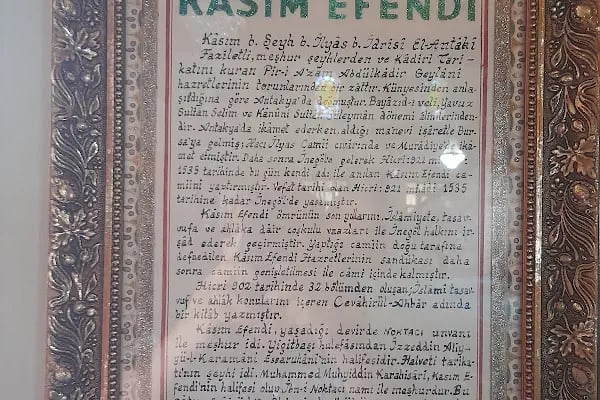 KASIM EFENDİ
Kâsım b. Şeyh b. İlyas b. İdrisî El-Antâkî
Faziletli, meşhur şeyhlerden ve Kâdirî Tari-
katını kuran Pir-i A'zam Abdülkâdir Geylânî
hazretlerinin torunlarından bir zattır. Künyesinden anla-
şıldığına göre Antakya'da doğmuştur. Bayâzıd-ı velî, Yavuz
Sultan Selim ve Kânûnî Sultan Süleyman dönemi âlimlerinden-
dir. Antakya'da ikâmet ederken, aldığı manevi işâretle Bur-
sa'ya gelmiş; Hacı İlyas Camii civarında ve Murâdiye'de ikâ-
met etmiştir. Daha sonra İnegöl'e gelerek Hicri: 921
1535 tarihinde bu gün kendi adı ile anılan Kâsım Efendi ca-
miini yaptırmıştır. Vefat tarihi olan Hicri: 921 miladi 1535
tarihine kadar İnegöl'de yaşamıştır.
Kâsım Efendi ömrünün son yıllarını, İslâmiyete, tasav-
vufa ve ahlâka dâir coşkulu vaazları ile İnegöl halkını ir-
şâd ederek geçirmiştir. Yaptığı camiin doğu tarafına
defnedilen Kâsım Efendi Hazretlerinin sandukası daha
sonra camiin genişletilmesi ile câmi içinde kalmıştır.
Hicri 902 tarihinde 32 bölümden oluşan; İslâmî tasav-
vuf ve ahlâk konularını içeren Cevâhirül-Ahbâr adında
bir kitâb yazmıştır.
Kâsım Efendi, yaşadığı devirde NOKTACI unvanı
ile meşhur idi. Yiğitbaşı hulefâsından İzzeddin Aliy-
yü-l-Karamânî Essâruhânî'nin halifesidir. Halveti tarika-
tı'nın şeyhi idi. Muhammed Muhyiddin Karahisârî, Kâsım E-
fendi'nin halifesi oluv, İbn-i Noktacı namı ile meşhurdur. Bu